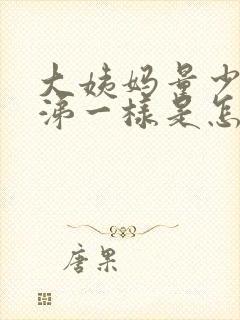 大姨妈量少
涕一样是怎
唐果